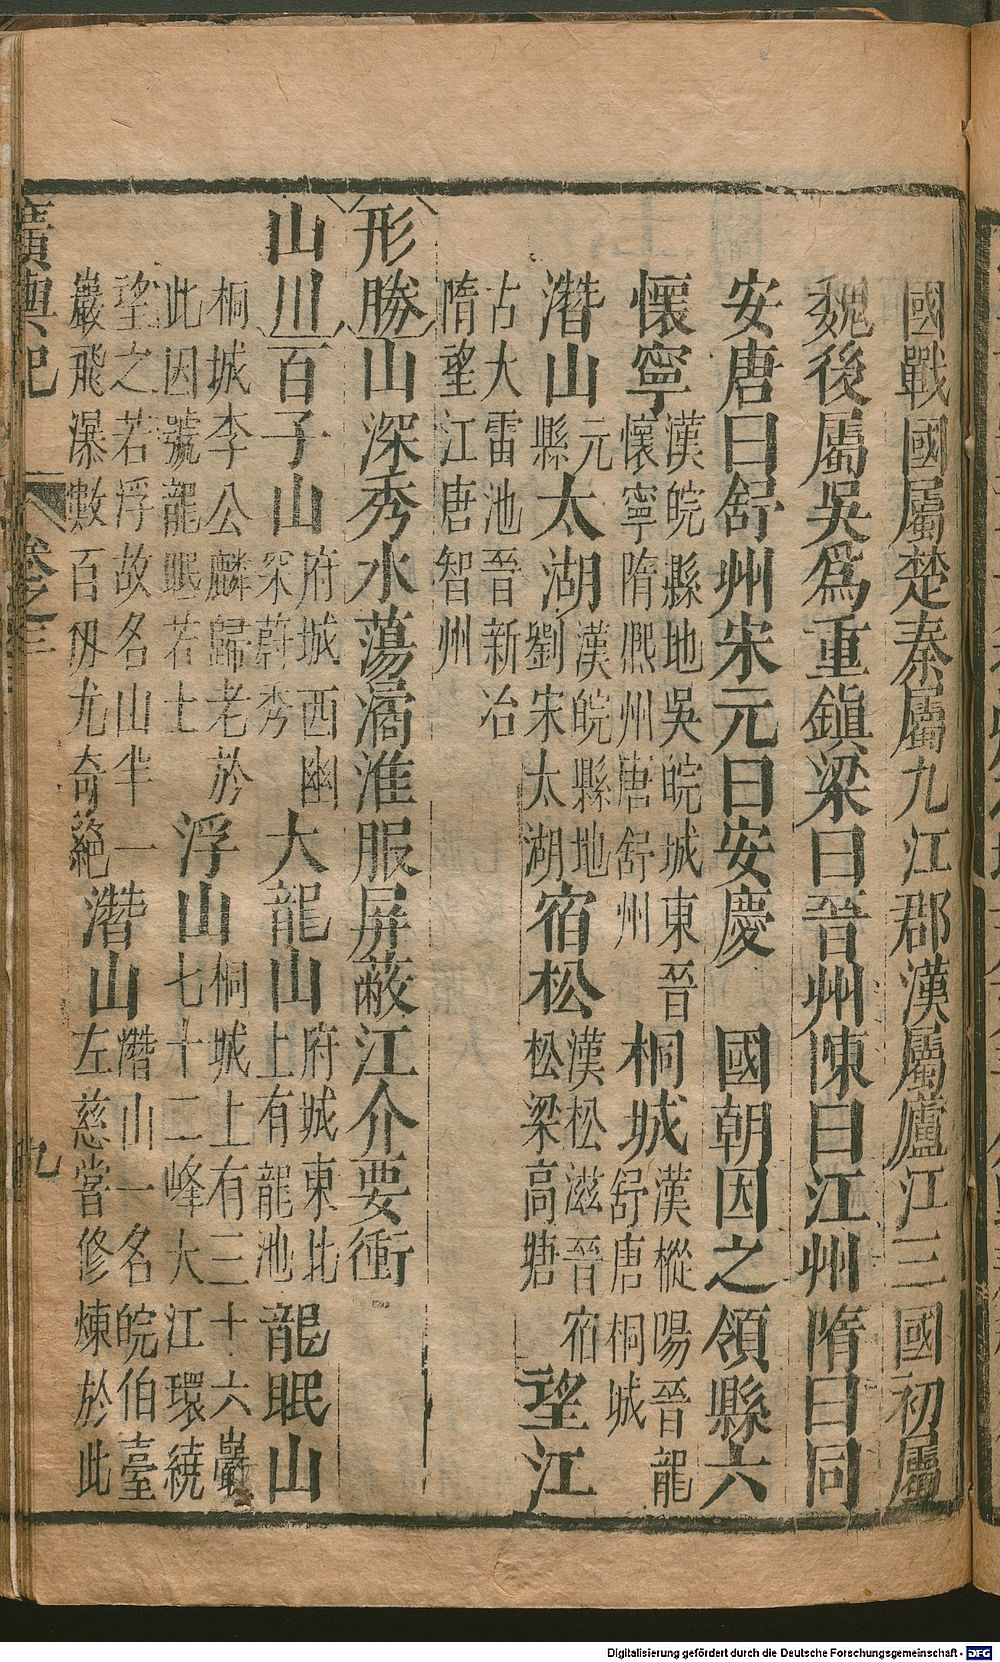 國戰國屬楚秦屬九江郡漢屬廬江三國初屬
魏後屬吳爲重鎮梁曰晉州陳曰江州隋曰同
安唐曰舒州宋元曰安慶 國朝因之領縣六
懷寧 漢皖縣地吳皖城東晉
懷寧隋熈州唐舒州
桐城 漢樅陽晉龍
舒唐桐城
潛山 元
縣
太湖 漢皖縣地
劉宋太湖
宿松 漢松滋晉宿
松梁高塘
望江
古大雷池晉新冶
隋望江唐智州
形勝 山深秀水蕩潏淮服屏蔽江介要衝
山川 百子山 府城西幽
深蔚秀
大龍山 府城東北
上有龍池
龍眠山
桐城李公麟歸老於
此因號龍眠若士
浮山 桐城上有三十六巖
七十二峰大江環繞
望之若浮故名山半一
巖飛瀑數百仭尤奇絕
潛山 潛山一名皖伯臺
左慈嘗修煉於此
廣輿記 卷之三 九
Digitalisierung gefördert durch die Deutsche Forschungsgemeinschaft - DFG